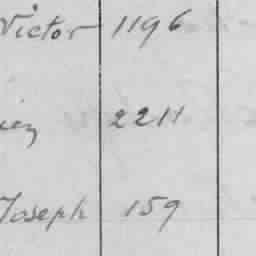 Victor 1196
2211
Joseph 159